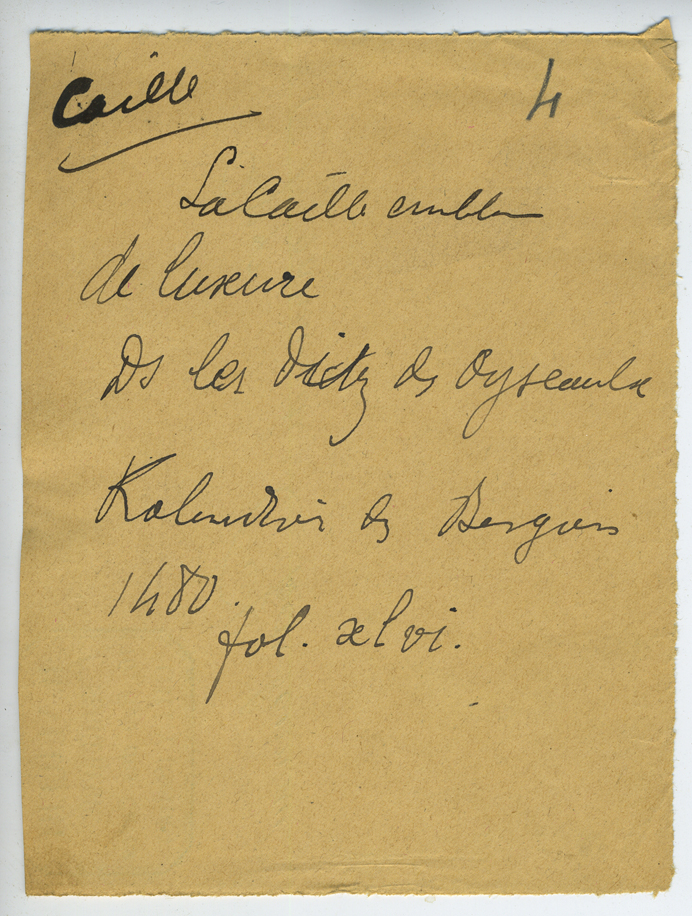 Caille
4
La Caille emblem
de luxure
Ds les Dictz des Oyseaulx
Kalendrier des Bergiers
1480.
fol. xlvi.